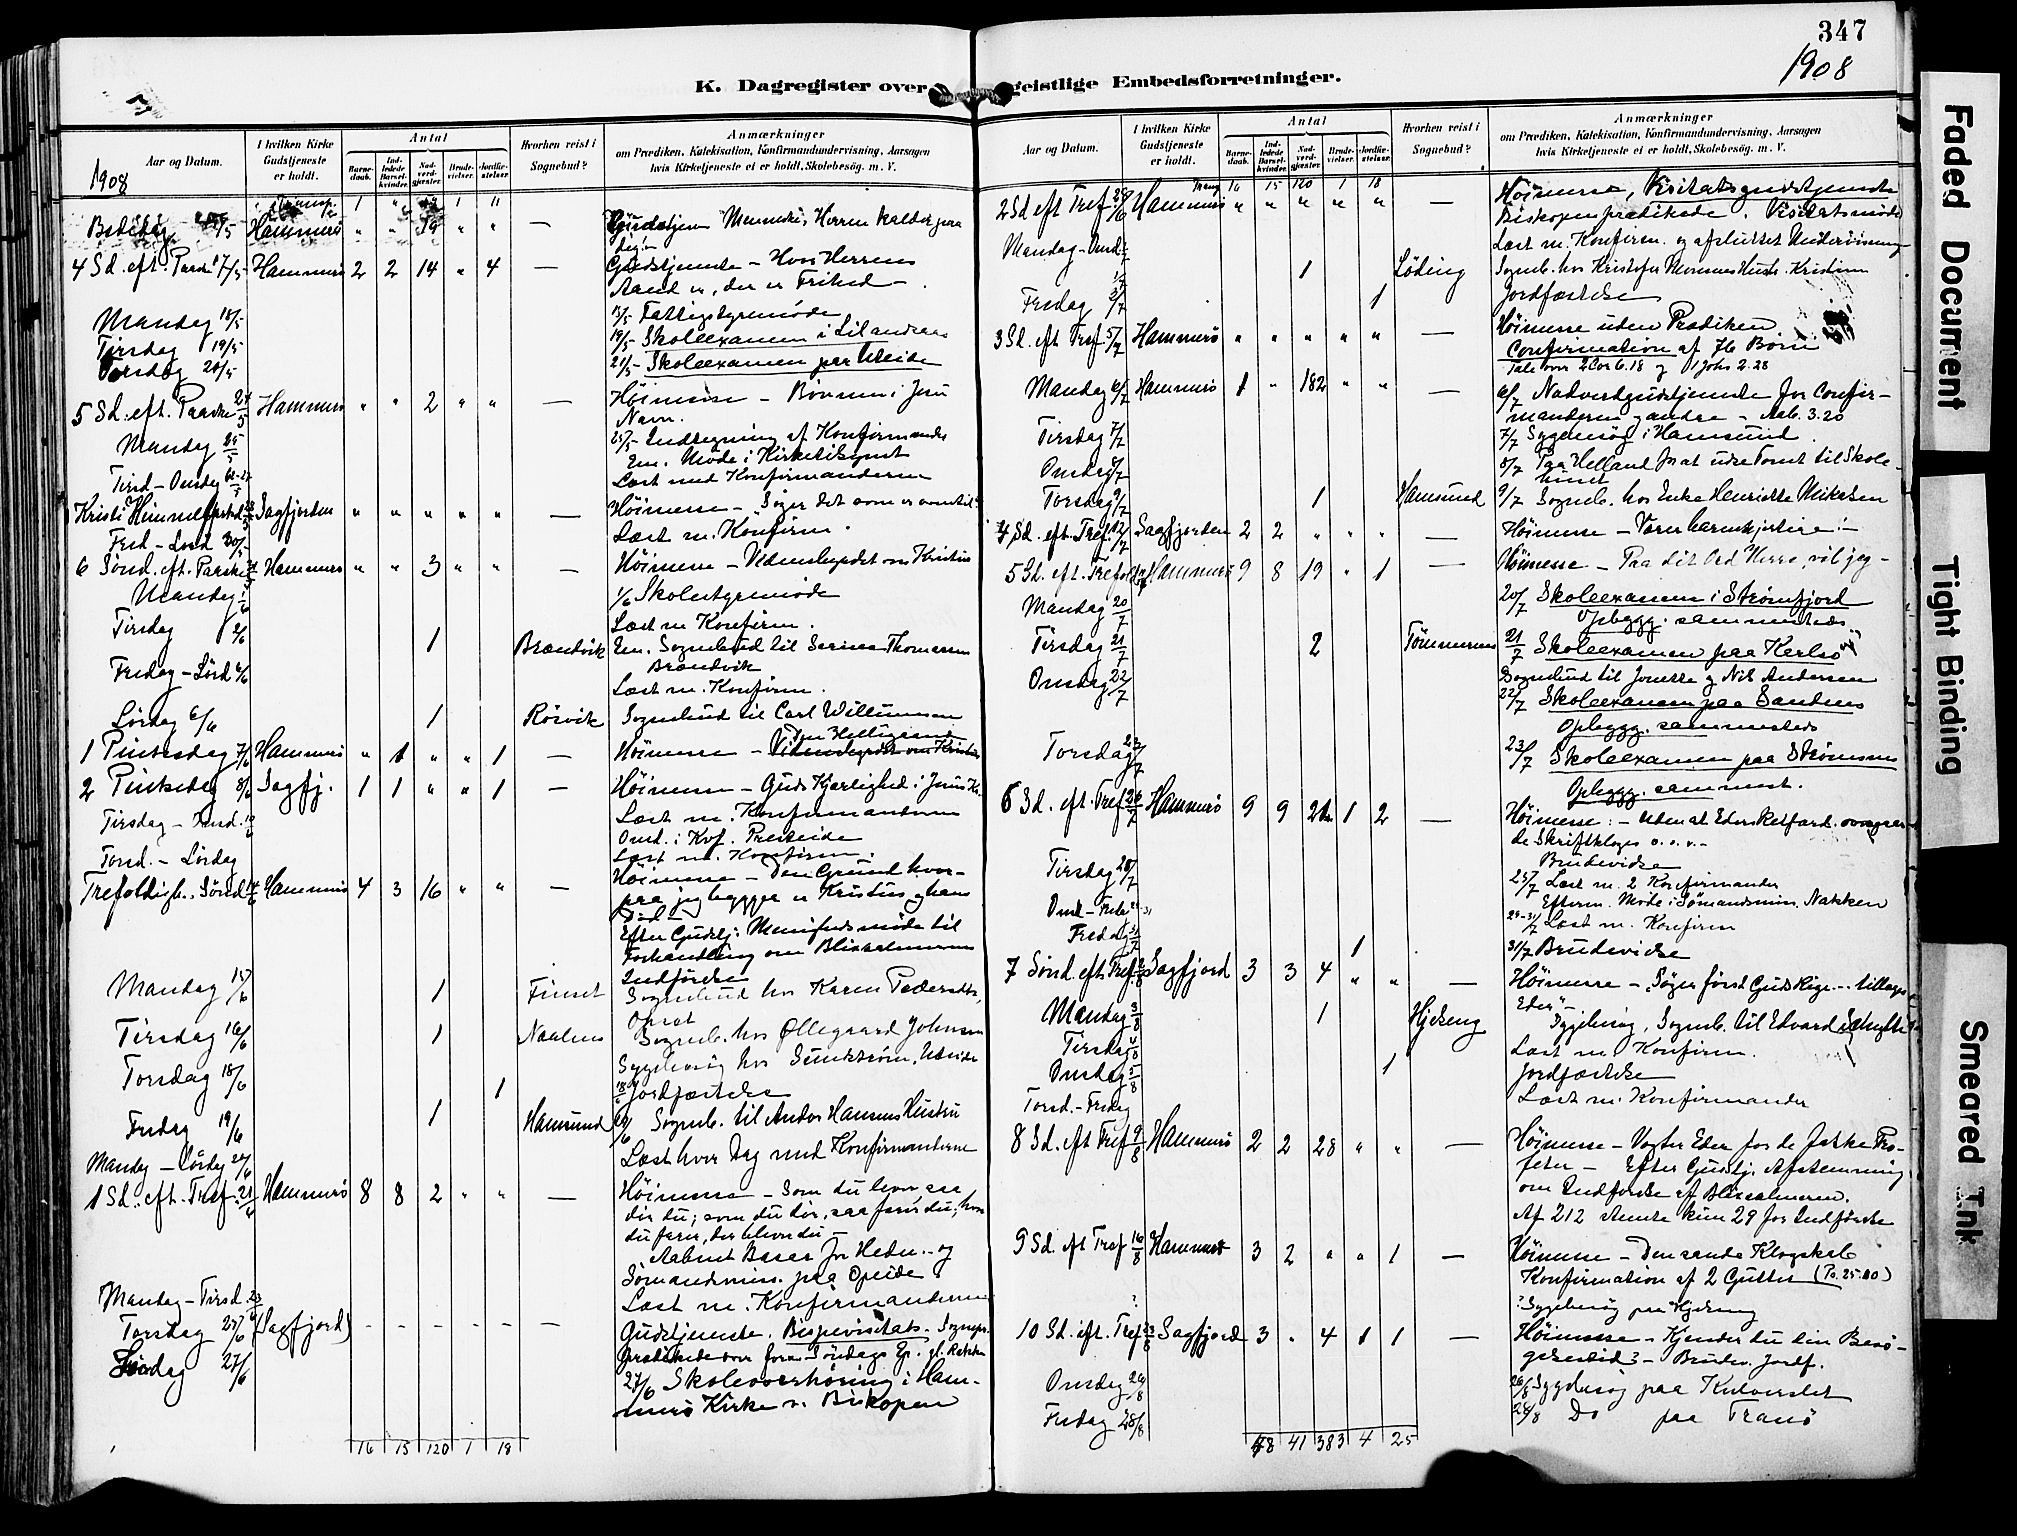 347
1908
K. Dagregister over geistlige Embedsforretninger.
Aar og Datum.
I hvilken Kirke Gudstjeneste er holdt.
Antal
Barne-daab.
Ind-ledede Barsel-kvinder.
Nad-verd-gjæster.
Brude-vielser.
Jordfæ-stelser.
Hvorhen reist i Sognebud?
Anmærkninger
om Prædiken, Katekisation, Konfirmandundervisning, Aarsagen
hvis Kirketjeneste ei er holdt, Skolebesøg. m. V.
1908
Hammerø " " 19 " " —
Menneske, Herren kalder paa
dig!"
4 Sd. eft. Paaske 17/5 Hammerø 2 2 14 " 4 — Gudstjeneste – Hvor Herrens
Aand er, der er Frihed –
Mandag 18/5 18/5 Fattigstyremøde
Tirsdag 19/5 19/5 Skoleexamen i
21/5 Skoleexamen paa Uleide
5 Sd. eft. Paaske 24/5 Hammerø " " 2 " " — Høimesse – Bønnen i Jesu
Navn.
Mandag 25/5 25/5 Indtegning af Konfirmander
Em. Møde i Kirketilsynet
Tirsd – Onsdag Læst med Konfirmanderne
Kristi Himmelfartsd. Sagfjorden " " " " " — Høimesse – Søger det som er oventil
Fred – Lørd 30/5 Læst m. Konfirm.
6 Sønd. eft. Paaske Hammerø " " 3 " " — Høimesse – Vidnesbyrdet om Kristus
Mandag 1/6 1/6 Skolestyremøde
Læst m. Konfirm.
Tirsdag 2/6 1 Brændvik Em. Sognebud til Serine Thomassen
Brændvik
Fredag – Lørd 6/6 Læst m. Konfirm.
Lørdag 6/6 1 Røsvik Sognebud til Carl Willumsen
Den Helligaand
1 Pintsedag 7/6 Hammerø " 1 " " 1 — Høimesse – Vidnesbyrdet om Kristus
2 Pintsedag 8/6 Sagfj. 1 1 " " 1 — Høimesse – Guds Kjærlighed i Jesus Kr.
Tirsdag – Onsd. Læst m. Konfirmanderne
Torsd. – Lørdag Læst m. Konfirm.
Trefoldigh. Sønd. 14/6 Hammerø 4 3 16 " " — Høimesse – Den Grund hvor-
paa jeg bygger er Kristus og hans
Efter Gudstj: Menighedsmøde til
Forhandling om Blixsalmernes
Indførelse
Mandag 15/6 1 Finset Sognebud hos Karen Pedersdtr.
Tirsdag 16/6 1 Sogneb. hos Ollegaard Johnsen
Sygebesøg hos
Torsdag 18/6 1 18/6 Jordfæstelse
Fredag 19/6 1 Hamsund 19/6 Sogneb. til Andor Hansens Hustru
Mandag – Lørdag 20/6 Læst hver Dag med Konfirmanderne
1 Sd. eft. Tref. 21/6 Hammerø 8 8 2 " " — Høimesse – Som du lever saa
dør du; som du dør, saa farer du; hvor
du farer, der bliver du –
Aabnet Basar for Hedn.- og
Sømandsmiss. paa Opeide
Mandag – Tirsd. 23/6 Læst m. Konfirmanderne
Torsdag 25/6 (Sagfjord) - - - - - — Gudstjeneste. Bispevisitats. Sognepr.
prædikede over forr. Søndags Ep. gl. Række
27/6 27/6 Skoleoverhøring i Ham-
merø Kirke v. Biskopen
16 15 120 1 18
Aar og Datum.
I hvilken Kirke Gudstjeneste er holdt.
Antal
Barne-daab.
Ind-ledede Barsel-kvinder.
Nad-verd-gjæster.
Brude-vielser.
Jordfæ-stelser.
Hvorhen reist i Sognebud?
Anmærkninger
om Prædiken, Katekisation, Konfirmandundervisning, Aarsagen
hvis Kirketjeneste ei er holdt, Skolebesøg. m. V.
16 15 120 1 18
2 Sd eft Tref 28/6 Hammerø " " " " " — Høimesse, Visitatsgudstjeneste
Biskopen prædikede. Visitatsmøde
Mandag – Onsd. Læst m. Konfirm. og afsluttet Undervisning
1/7 1 Løding Sogneb. hos Kristofer Monsens Hustr. Kristine
Fredag 3/7 1 Jordfæstelse
3 Sd. eft Tref. 5/7 Hammerø " " " " " — Høimesse uden Prædiken.
Confirmation af 76 Børn
Tale over 2 Cor 6.18 og 1 Johs 2.28
Mandag 6/7 Hammerø 1 " 182 " " — 6/7 Nadverdgudstjeneste for Confir-
manderne og andre – Aab. 3.20
Tirsdag 7/7 7/7 Sygebesøg i Hamsund.
Onsdag 8/7 8/7 Paa Helland for at udse Tomt til Skole-
huset
Torsdag 9/7 1 Hamsund 9/7 Sogneb. hos Enke Henriette Mikelsen
4 Sd. eft. Tref. 12/7 Sagfjorden 2 2 " " " — Høimesse – Værer barmhjertige!–
5 Sd. eft. Tref. 19/7 Hammerø 9 8 19 " 1 — Høimesse – Paa dit Ord Herre, vil jeg –
Mandag 20/7 20/7 Skoleexamen i Strømfjord
Opbygg. sammesteds
Tirsdag 21/7 2 Tømmernes 21/7 Skoleexamen paa Karlsø
Sognebud til Jonette og Nils Andersen
Onsdag 22/7 22/7 Skoleexamen paa Sandnes
Opbygg. sammesteds
Torsdag 23/7 23/7 Skoleexamen paa Strømsnes
Opbygg. sammest.
6 Sd. eft. Tref. 26/7 Hammerø 9 9 1 2 — Høimesse: – Uden at Eders Retfærd. overgaar
de Skriftkloges o.s.v.–
Brudevielse
Tirsdag 28/7 Læst m. 2 Konfirmander
Efterm. Møde i Sømandsmiss. Nakken
Onsd – Freda 29-31/7 29-31/7 Læst m. Konfirm
Fredag 31/7 1 31/7 Brudevielse
7 Sønd. eft. Tref. 2/8 Sagfjord 3 3 4 " " — Høimesse – Søger først Guds Rige – tillægges
Eder" –
Mandag 3/8 1 Sygebesøg, Sogneb. til Edvard
Tirsdag 4/8 Læst m. Konfirm.
Onsdag 5/8 1 Jordfæstelse
Torsd. – Fredag Læst m. Konfirmander
8 Sd. eft Tref 9/8 Hammerø 2 2 28 " " — Høimesse – Vogter Eder for de falske Pro-
feter – Efter Gudstj. Afstemning
om Indførelse af Blixsalmerne.
Af 212 stemte kun 29 for Indførelse
9 Sd. eft Tref 16/8 Hammerø 3 2 " " 1 — Høimesse – Den sande Klogskab
Konfirmation af 2 Gutter (Ps. 25.10)
Sygebesøg paa
10 Sd. eft. Tref. 23/8 Sagfjord 3 " 4 1 1 — Høimesse – Kjender du din Besø-
gelsestid? – Brudev. Jordf.
Onsdag 26/8 26/8 Sygebesøg paa
Fredag 28/8 28/8 Do paa Tranø
48 41 383 4 25
Faded Document
Tight Binding
Smeared Ink